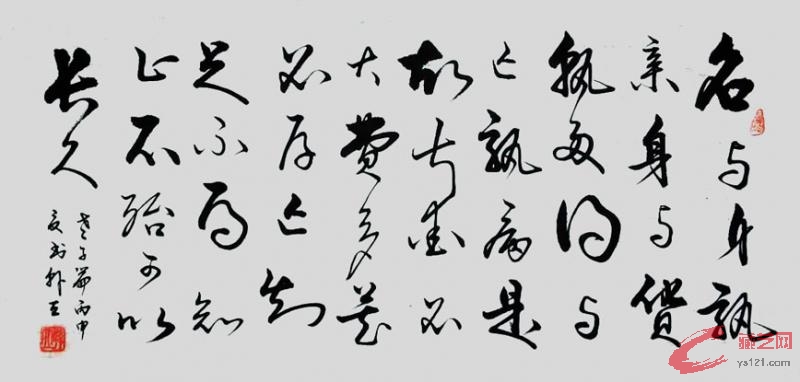 名与身孰
亲身与貨
孰多得与
亡孰病是
故甚爱必
大費多藏
必厚亡知
足不辱知
止不殆可以
長久
老子篇丙申
夏书
ys121.com